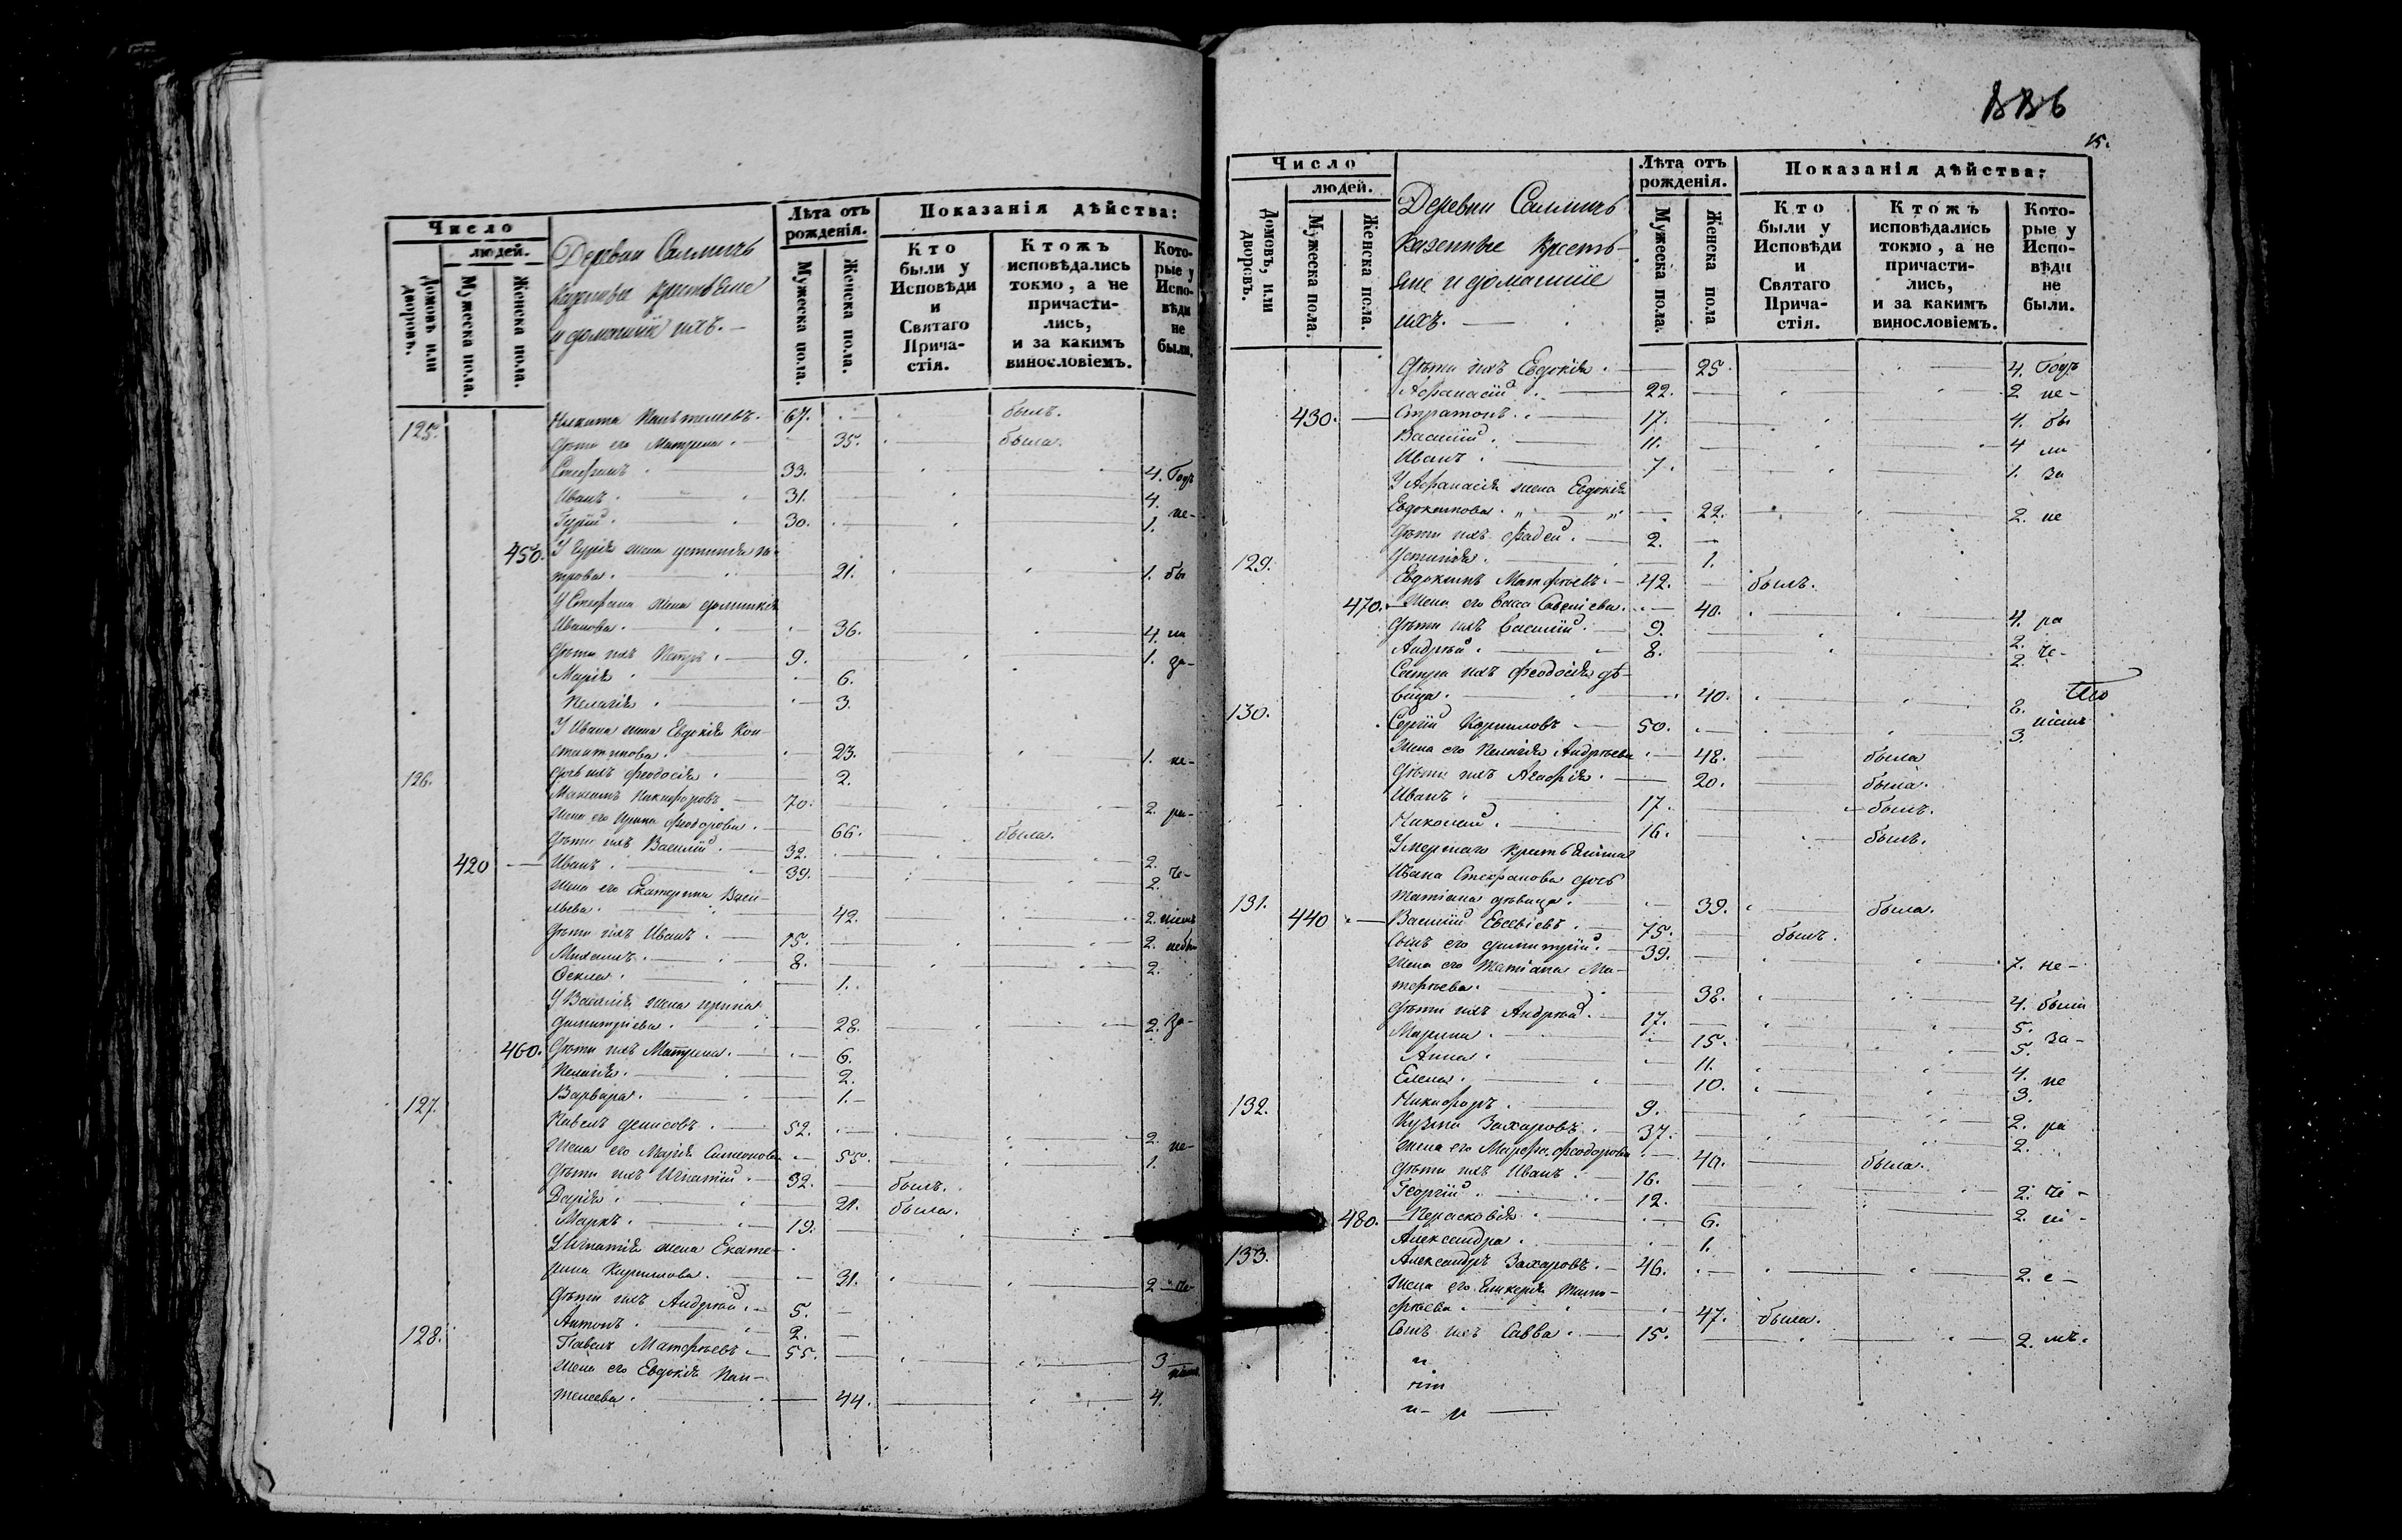 Число
людей.
Домовъ или дворовъ.
Мужеска пола.
Женска пола.
Деревни Саллмихъ
Казенные крестьяне
и домашніе ихъ. —
Лѣта отъ рожденія.
Мужеска пола.
Женска пола.
Показанія дѣйства:
Кто были у Исповѣди и Святаго Прича-стія.
Ктожъ исповѣдались токмо, а не причасти-лись, и за какимъ винословіемъ.
Кото-рые у Испо-вѣди не были.
125. Никита 67. былъ.
дѣти его Матрена. 35. была.
Стефанъ. 33. 4. Годъ
Иванъ. 31. 4. не-
Гурій. 30. 1.
450. У Гурія жена Устинія Пе-
трова. 21. 1. бы
У Стефана жена Домникія
Иванова. 36. 4. ли
дѣти ихъ Петръ. 9. 1. за-
Марія. 6.
Пелагія. 3.
У Ивана жена Евдокія Кон-
стантинова. 23. 1. не-
дочь ихъ Феодосія. 2.
126. Максимъ Никифоровъ 70. 2. ра-
Жена его Ирина Феодорова. 66. была.
дѣти ихъ Василій. 32. 2.
420 Иванъ. 39. 2. че-
Жена его Екатерина Васи-
льева. 42. 2. ніемъ
дѣти ихъ Иванъ. 15. 2.
Михаилъ. 8. 2.
Фекла. 1.
У Василія жена Ирина
Димитріева. 28. 2. за-
460. дѣти ихъ Матрена. 6.
Пелагія. 2.
Варвара. 1.
127. Павелъ Денисовъ. 52. 2. не-
Жена его Марія Симеонова 55. 1.
дѣти ихъ Игнатій. 32. былъ.
Дарія. 21. была.
Маркъ. 19.
У Игнатія жена Екате-
рина Кириллова. 31. 2 че-
дѣти ихъ Андрей. 5.
Антонъ. 2.
128. Павелъ Матфѣевъ. 55. 3
Жена его Евдокія Пан-
телеева. 44. 4.
886
15.
Число
людей.
Домовъ, или дворовъ.
Мужеска пола.
Женска пола.
Деревни Саллмихъ
Казенные кресть-
яне и домашніе
ихъ. —
Лѣта отъ рожденія.
Мужеска пола.
Женска пола
Показанія дѣйства:
Кто были у Исповѣди и Святаго Прича-стія.
Ктожъ исповѣдались токмо, а не причасти-лись, и за какимъ винословіемъ.
Кото-рые у Испо-вѣди не были.
Дѣти ихъ Евдокія. 25. 4. Годъ
Афанасій. 22. 2 не-
430. Стратонъ. 17. 4. бы
Василій. 11. 4 ли
Иванъ. 7. 1. за
У Афанасія жена Евдокія
Евдокимова. 22. 2. не
Дѣти ихъ Фадей. 2.
Устинія. 1.
129. Евдокимъ Матфѣевъ. 42. былъ.
470. Жена его Васса Савеліева. 40. 4. ра
дѣти ихъ Василій. 9. 2.
Андрей. 8. 2. че-
Сестра ихъ Феодосія дѣ-
вица. 40. 2.
130. Сергій Кориловъ 50. 3. ніемъ
Жена его Пелагія Андреева 48. была
дѣти ихъ Агафія. 20. была.
Иванъ. 17. былъ.
Николай. 16. былъ.
Умершаго крестьянина
Ивана Стефанова дочь
Татіана дѣвица. 39. была.
131. 440 Василій Евсевіевъ. 75. былъ.
Сынъ его Димитрій. 39. 7. не-
Жена его Татіана Ма-
тфѣева. 38. 4. были
дѣти ихъ Андрей. 17. 5.
Марина. 15. 5. за-
Анна. 11. 4.
Елена. 10. 3. не
Никифоръ. 9. 2. ра
132. Кузма Захаровъ. 37. 2.
Жена его Марфа Феодорова 40. была.
дѣти ихъ Иванъ. 16. 2. че-
Георгій. 12. 2. ні-
480. Парасковія. 6.
Александра. 1.
133. Александръ Захаровъ. 46. 2. е-
Жена его Гликерія Тимо-
фѣева. 47. была.
Сынъ ихъ Савва. 15. 2. мъ.